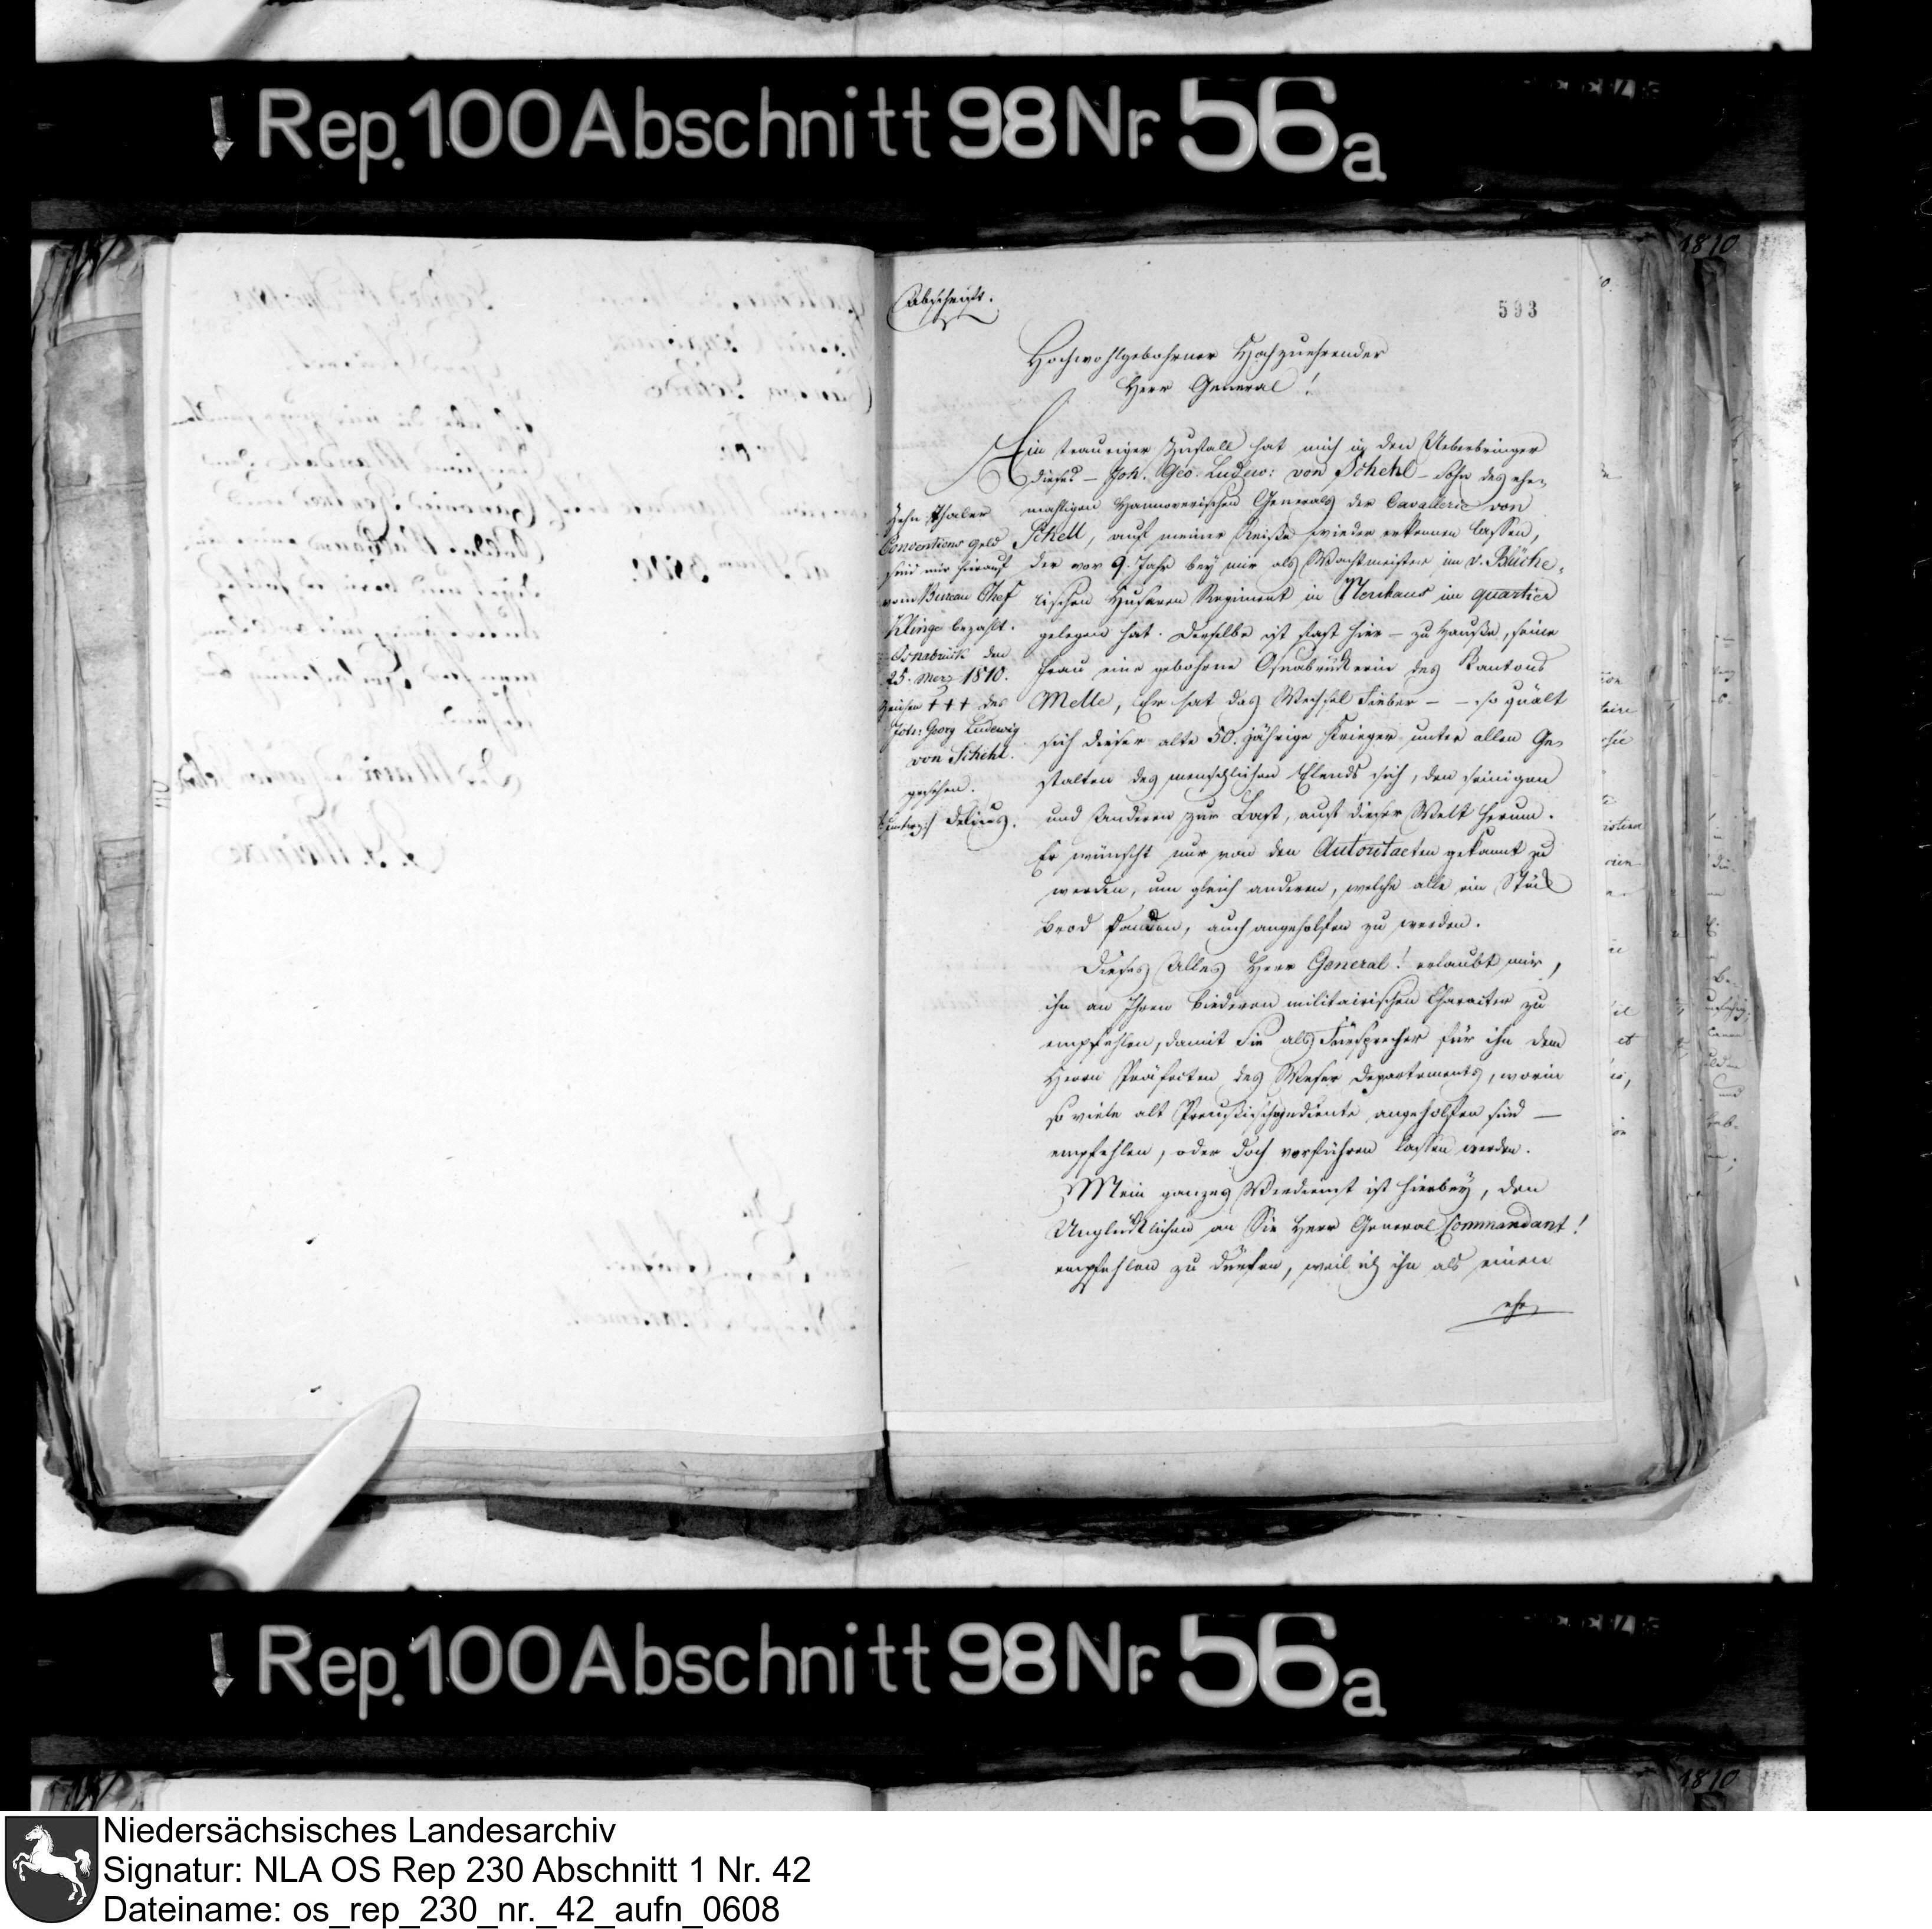 Rep. 100 Abschnitt 98 Nr. 56a
1810.
593
Abschrift.
Hochwohlgebohrner Hochzuehrender
Herr General!
Ein trauriger Zufall hat mich in den Ueberbringer
dieses – Joh. Geo. Ludew: von Schehl – Sohn des ehe-
mahligen Hannoverischen Generals der Cavallerie von
Schell, auf meiner Reise wieder erkennen lassen,
der vor 9. Jahr bey mir als Wachtmeister im v. Blüche-
rischen Husaren Regiment in im quartier
gelegen hat. Derselbe ist fast hier – zu Hause, seine
Frau eine gebohrne Osnabrückerin des Kantons
Melle, Er hat das Wechsel Fieber – – so quält
sich dieser alte 50. jährige Krieger unter allen Ge-
stalten des menschlichen Elends sich, den seinigen
und Anderen zur Last, auf dieser Welt herum.
Er wünscht nur von den Autoritaeten gekannt zu
werden, um gleich anderen, welche alle ein Stück
Brod fanden, auch angeholfen zu werden.
Dieses Alles Herr General! erlaubt mir,
ihn an Ihren biederen militairischen Character zu
empfehlen, damit Sie als Fürsprecher für ihn dem
Herrn Präfecten des Weser Departements, worin
so viele alt Preußischgediente angeholfen sind –
empfehlen, oder doch vorführen lassen werden.
Mein ganzes Verdienst ist hierbey, den
Unglücklichen an Sie Herr General Commandant!
empfehlen zu dürfen, weil ich ihn als einen
ehr
Zehn Thaler
Conventions Geld
sind mir hierauf
vom Bureau Chef
Klinge bezahlt.
Osnabrück den
25. Merz 1810.
Zeichen +++ des
Joh: Georg Ludewig
von Schehl.
gesehen.
unterz: Delius.
Rep. 100 Abschnitt 98 Nr. 56a
1810
Niedersächsisches Landesarchiv
Signatur: NLA OS Rep 230 Abschnitt 1 Nr. 42
Dateiname: os_rep_230_nr._42_aufn_0608